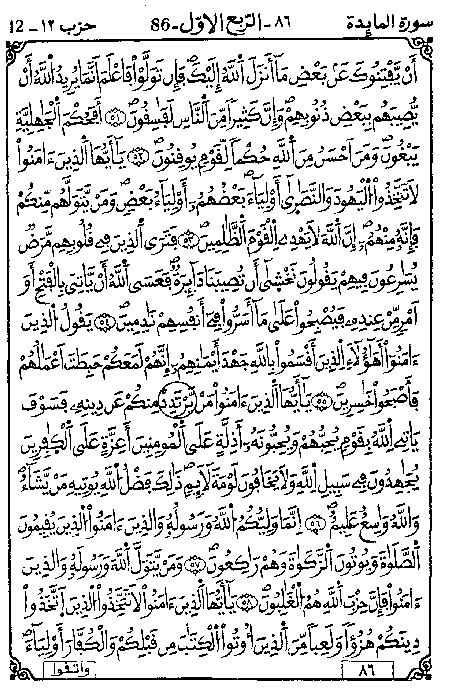 سورة المايدة ٨٦-الربع الاول-86 حزب ١٢-12
أَنْ يَّفْتِنُوكَ عَنۢ بَعْضِ مَآ أَنزَلَ اَللَّهُ إِلَيْكَ فَإِن تَوَلَّوْاْ فَاعْلَمَ اَنَّمَا يُرِيدُ اُللَّهُ أَنْ
يُّصِيبَهُم بِبَعْضِ ذُنُوبِهِمْ وَإِنَّ كَثِيراً مِّنَ اَلنَّاسِ لَفَٰسِقُونَ ٥١ أَفَحُكْمَ اَلْجَٰهِلِيَّةِ
يَبْغُونَ وَمَنَ اَحْسَنُ مِنَ اَللَّهِ حُكْماً لِّقَوْمٍ يُوقِنُونَ ٥٢ يَٰٓأَيُّهَا اَلذِينَ ءَامَنُواْ
لَا تَتَّخِذُواْ اُلْيَهُودَ وَالنَّصَٰرَىٰٓ أَوْلِيَآءَ بَعْضُهُمُۥٓ أَوْلِيَآءُ بَعْضٍ وَمَنْ يَّتَوَلَّهُم مِّنكُمْ
فَإِنَّهُۥ مِنْهُمُۥٓ إِنَّ اَللَّهَ لَا يَهْدِے اِلْقَوْمَ اَلظَّٰلِمِينَ ٥٣ فَتَرَى اَلذِينَ فِے قُلُوبِهِم مَّرَضٌ
يُسَٰرِعُونَ فِيهِمْ يَقُولُونَ نَخْشَىٰٓ أَن تُصِيبَنَا دَآئِرَةٌ فَعَسَى اَللَّهُ أَنْ يَّاتِيَ بِالْفَتْحِ أَوَ
اَمْرٍ مِّنْ عِندِهِۦ فَيُصْبِحُواْ عَلَىٰ مَآ أَسَرُّواْ فِےٓ أَنفُسِهِمْ نَٰدِمِينَ ٥٤ يَقُولُ اُلذِينَ
ءَامَنُوٓاْ أَهَٰٓؤُلَآءِ اِلذِينَ أَقْسَمُواْ بِاللَّهِ جَهْدَ أَيْمَٰنِهِمُۥٓ إِنَّهُمْ لَمَعَكُمْ حَبِطَتَ اَعْمَٰلُهُمْ
فَأَصْبَحُواْ خَٰسِرِينَ ٥٥ يَٰٓأَيُّهَا اَلذِينَ ءَامَنُواْ مَنْ يَّرْتَدِدْ مِنكُمْ عَن دِينِهِۦ فَسَوْفَ
يَاتِے اِللَّهُ بِقَوْمٍ يُحِبُّهُمْ وَيُحِبُّونَهُۥٓ أَذِلَّةٍ عَلَى اَلْمُومِنِينَ أَعِزَّةٍ عَلَى اَلْكَٰفِرِينَ
يُجَٰهِدُونَ فِے سَبِيلِ اِللَّهِ وَلَا يَخَافُونَ لَوْمَةَ لَآئِمٍ ذَٰلِكَ فَضْلُ اُللَّهِ يُوتِيهِ مَنْ يَّشَآءُ
وَاللَّهُ وَٰسِعٌ عَلِيمٌ ٥٦ اِنَّمَا وَلِيُّكُمُ اُللَّهُ وَرَسُولُهُۥ وَالذِينَ ءَامَنُواْ اُلذِينَ يُقِيمُونَ
اَلصَّلَوٰةَ وَيُوتُونَ اَلزَّكَوٰةَ وَهُمْ رَٰكِعُونَ ٥٧ وَمَنْ يَّتَوَلَّ اَللَّهَ وَرَسُولَهُۥ وَالذِينَ
ءَامَنُواْ فَإِنَّ حِزْبَ اَللَّهِ هُمُ اُلْغَٰلِبُونَ ٥٨ يَٰٓأَيُّهَا اَلذِينَ ءَامَنُواْ لَا تَتَّخِذُواْ اُلذِينَ اَتَّخَذُواْ
دِينَكُمْ هُزُؤاً وَلَعِباً مِّنَ اَلذِينَ أُوتُواْ اُلْكِتَٰبَ مِن قَبْلِكُمْ وَالْكُفَّارَ أَوْلِيَآءَ
٨٦ واتقوا